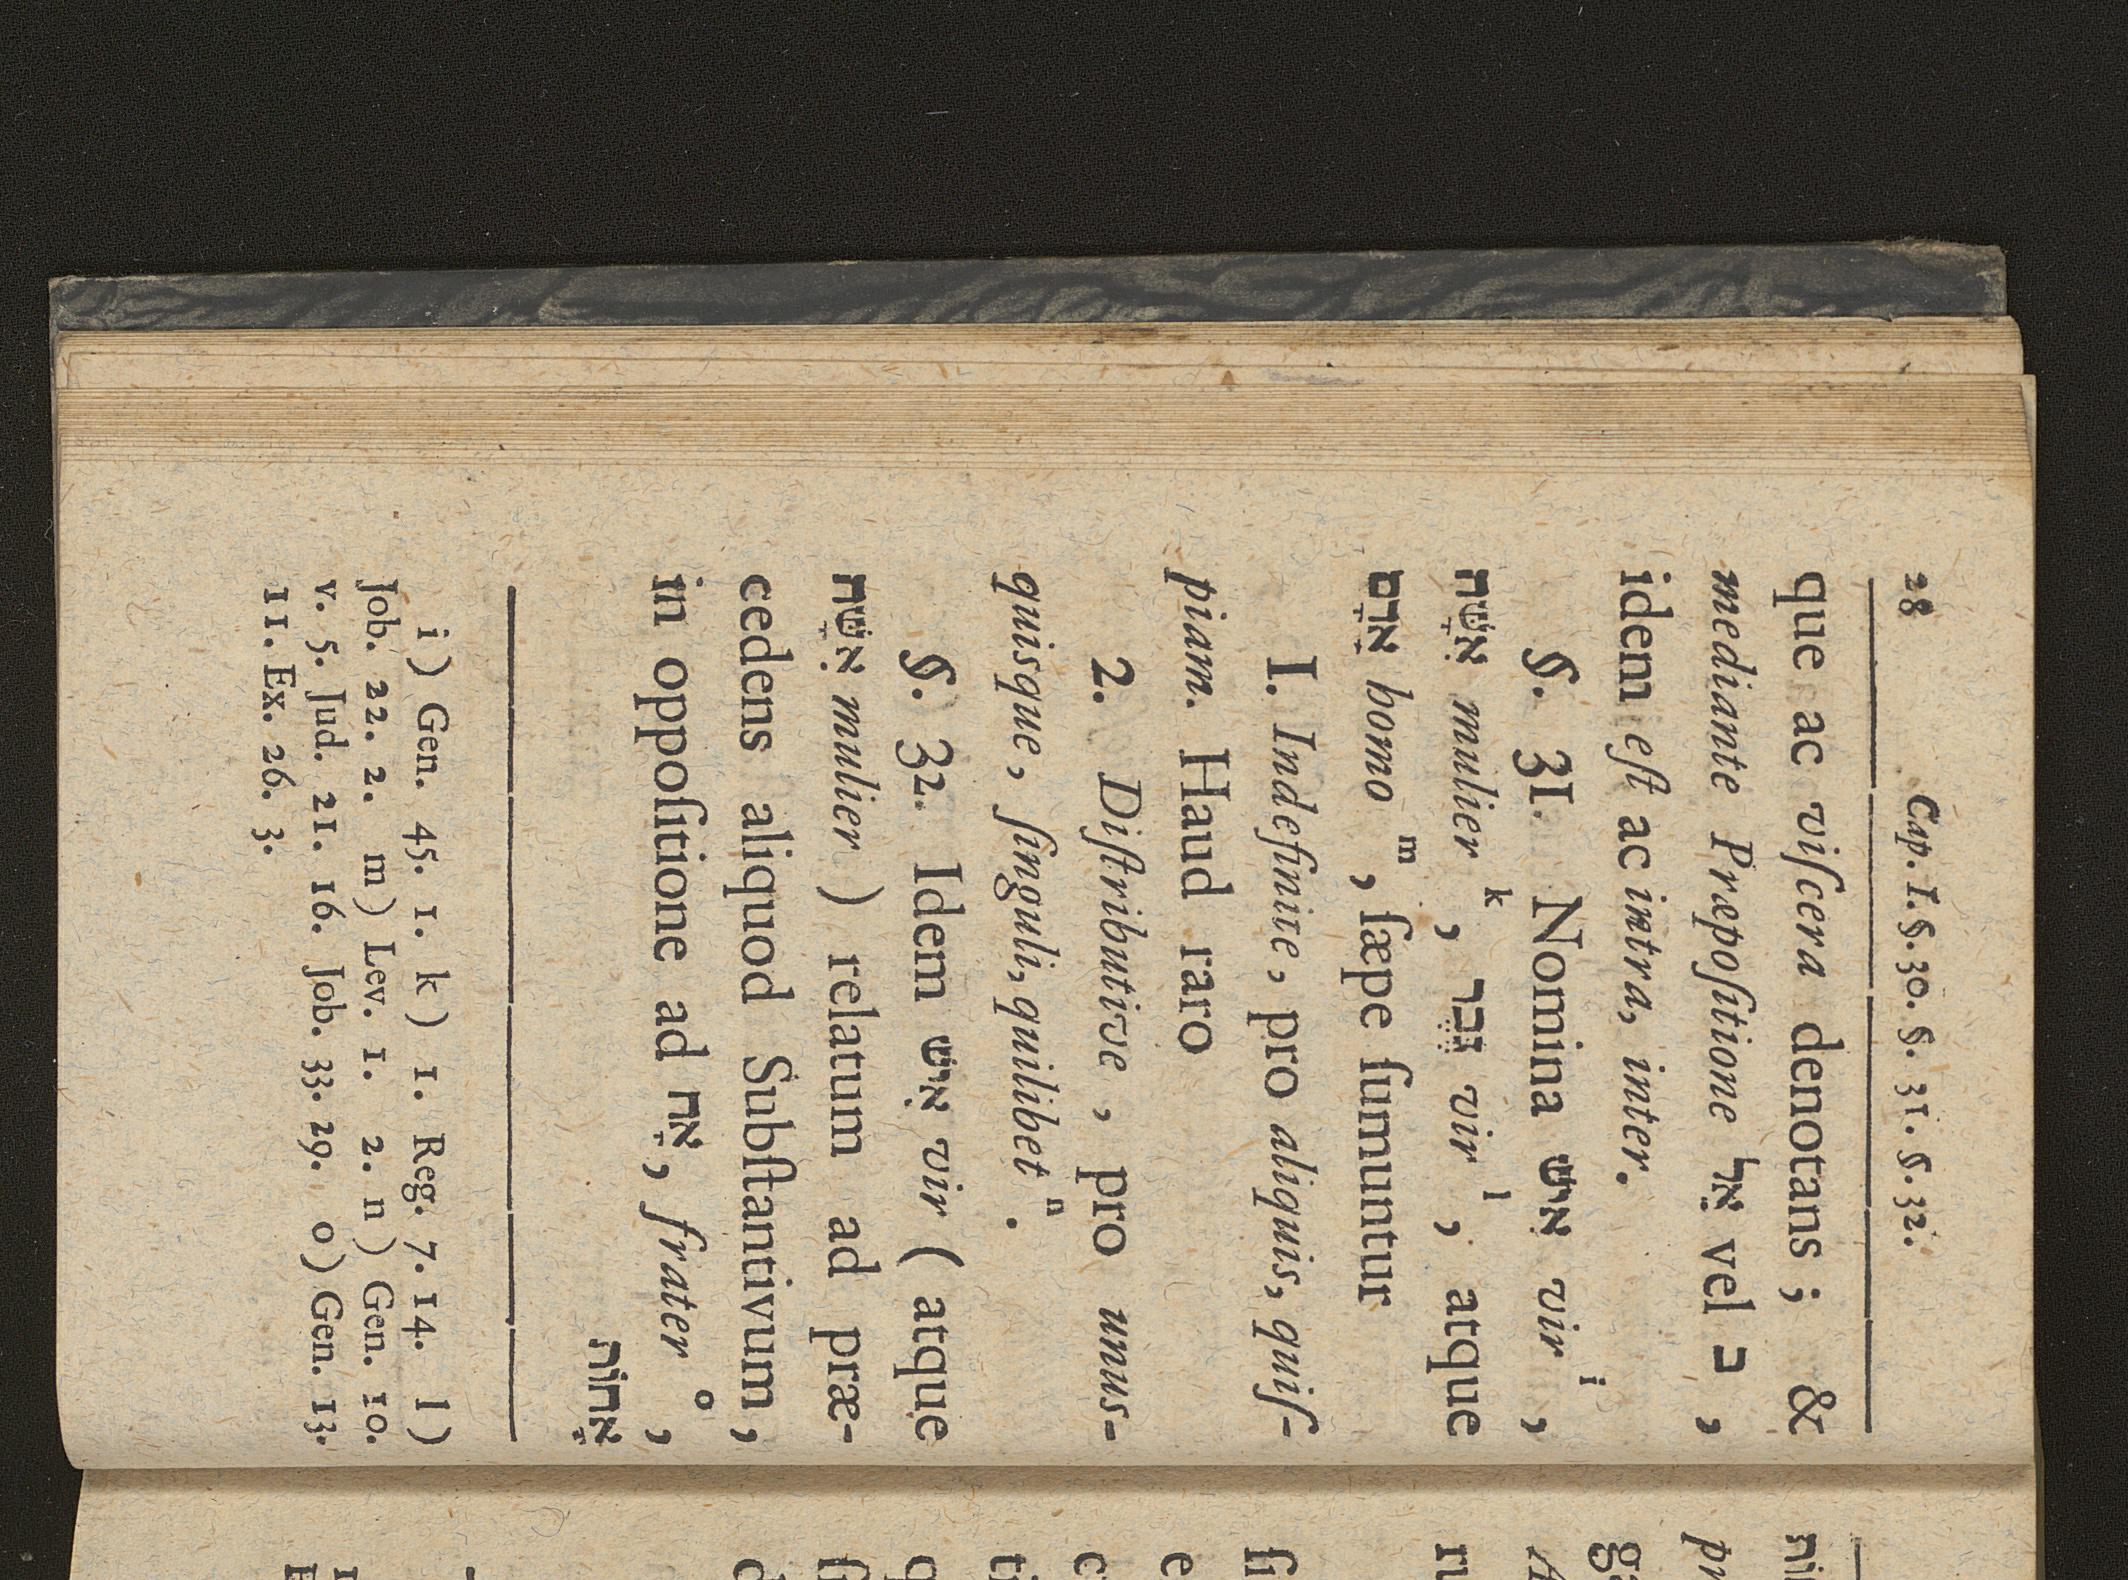 28 Cap. I. §. 30. §. 31. §. 32.
que ac viſcera denotans; &
mediante Præpoſitione אֶל vel ב,
idem eſt ac intra, inter.
§. 31. Nomina אִישׁ vir i,
אִשָּׁה mulier k, גֶּבֶר vir l, atque
אָדָם homo m, ſæpe ſumuntur
I. Indefinite, pro aliquis, quiſ-
piam. Haud raro
2. Diſtributive, pro unus-
quisque, ſinguli, quilibet n.
§. 32. Idem אִישׁ vir (atque
אִשָּׁה mulier) relatum ad præ-
cedens aliquod Subſtantivum,
in oppoſitione ad אָח, frater o,
אָחוֹת
i) Gen. 45. 1. k) 1. Reg. 7. 14. l)
Job. 22. 2. m) Lev. 1. 2. n) Gen. 10.
v. 5. Jud. 21. 16. Job. 33. 29. o) Gen. 13.
11. Ex. 26. 3.